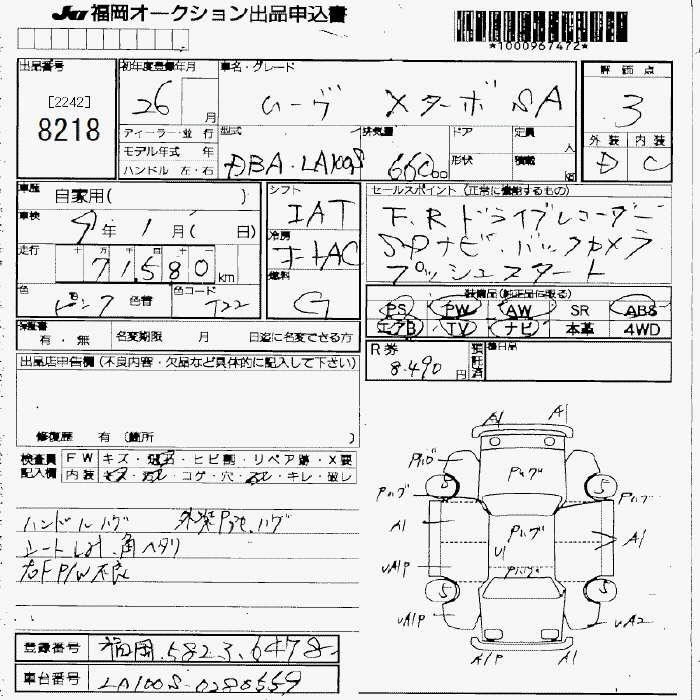 JU 福岡オークション出品申込書
*1000967472*
出品番号
[2242]
8218
初年度登録年月
26 月
車名・グレード
ムーヴ Xターボ SA
評価点
3
外装 内装
D C
ディーラー・並行
モデル年式 年
ハンドル 左・右
型式
DBA・LA100S
排気量
660 cc
ドア
形状
定員 人
積載 kg
車歴 自家用( )
車検 9年 1月( 日)
走行 十 万 千 百 十 一
71,580 km
色 ピンク 色替 色コード T22
シフト
IAT
冷房
オートAC
燃料
G
セールスポイント(正常に機能するもの)
F.Rドライブレコーダー
SDナビ・バックカメラ
プッシュスタート
装備品(純正品に限る)
PS PW AW SR ABS
エアB TV ナビ 本革 4WD
保証書
有・無 名変期限 月 日迄に名変できる方
R券
8.490円
預託済
後日品
出品店申告欄(不良内容・欠品など具体的に記入して下さい)
修復歴 有 (箇所 )
検査員 FW キズ・飛石・ヒビ割・リペア跡・X要
記入欄 内装 キズ・汚れ・コゲ・穴・スレ・キレ・破レ
ハンドルハゲ 外装Pヤセ,ハゲ
シートしみ.角ヘタリ
右F P/W不良
A1 A1
Pハゲ Pハゲ
5 5
Pハゲ Pハゲ
A1 Pハゲ A1
U1
UA1P Pハゲ
5 5
UA1P UA2
A1P A1
登録番号 福岡.582ろ6478
車台番号 LA100S-0280559